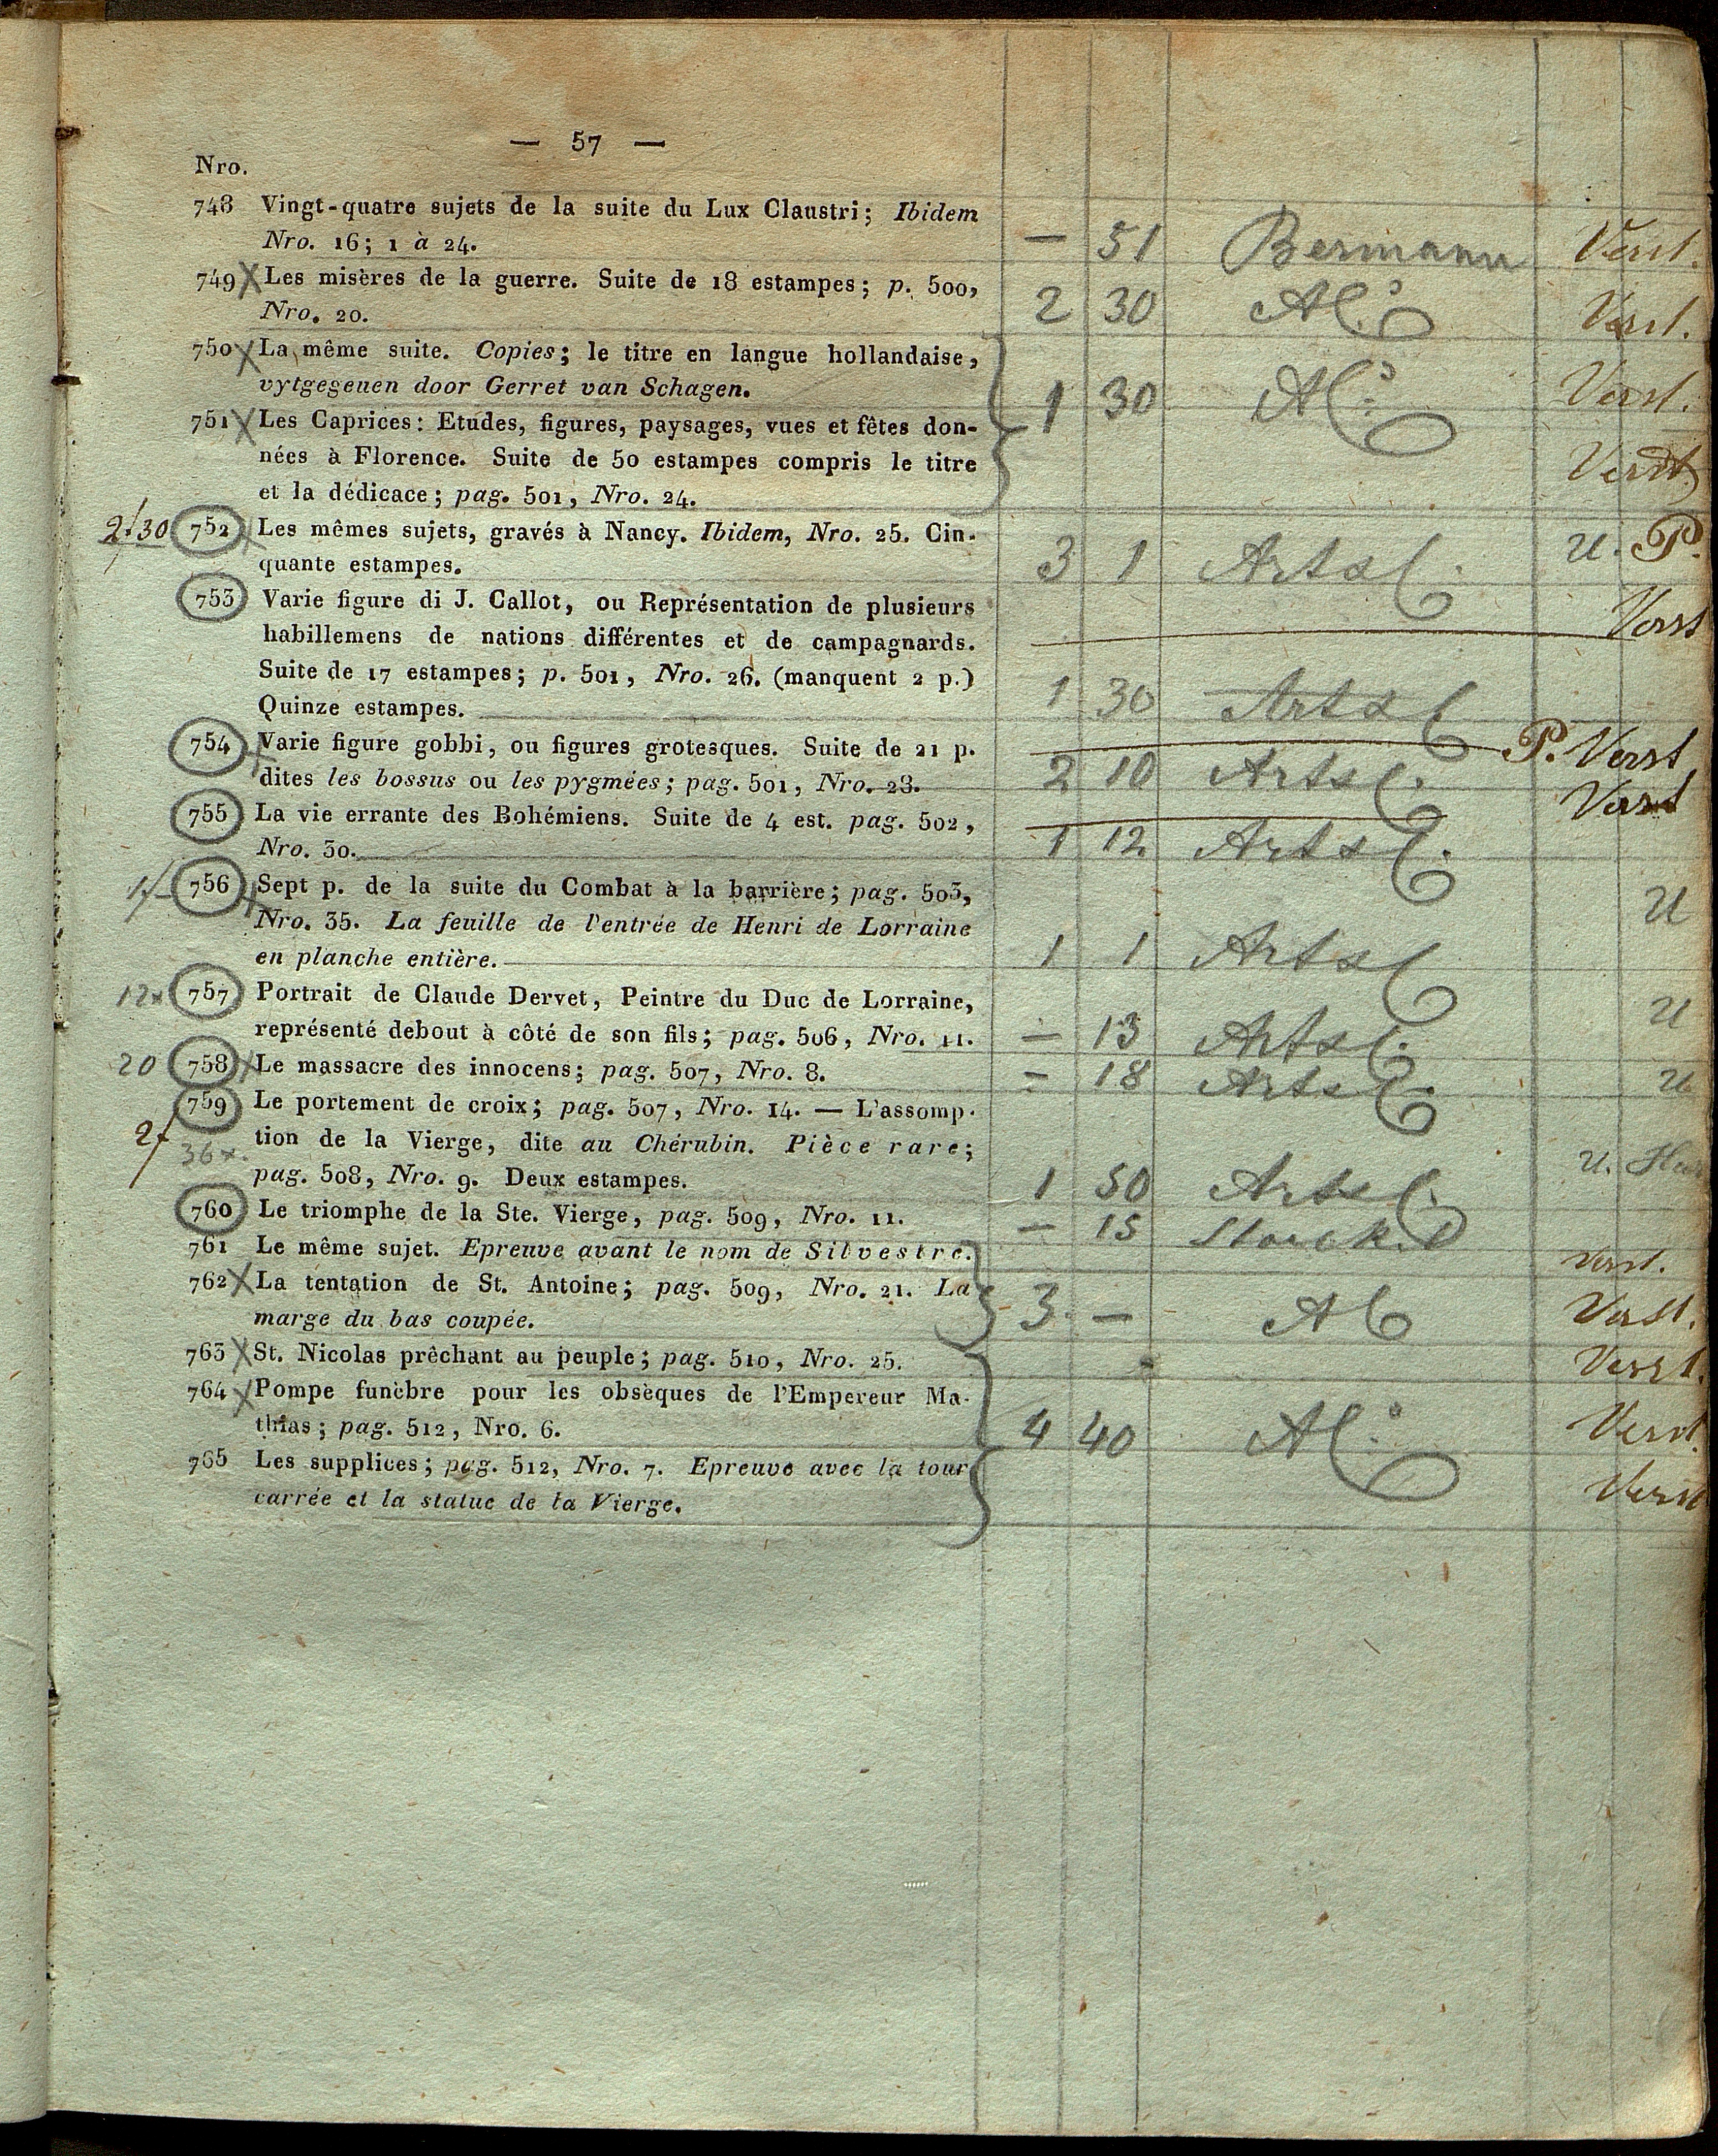 — 57 —
Nro.
748 Vingt-quatre sujets de la suite du Lux Claustri; Ibidem
Nro. 16; 1 à 24. — 51 Bermann Verst.
749 X Les misères de la guerre. Suite de 18 estampes; p. 500,
Nro. 20. 2 30 Al: Verst.
750 X La même suite. Copies; le titre en langue hollandaise,
vytgegeuen door Gerret van Schagen. 1 30 Al: Verst.
751 X Les Caprices: Etudes, figures, paysages, vues et fêtes don-
nées à Florence. Suite de 50 estampes compris le titre Verst.
et la dédicace; pag. 501, Nro. 24.
2f30 752 Les mêmes sujets, gravés à Nancy. Ibidem, Nro. 25. Cin-
quante estampes. 3 1 Arts U. P.
753 Varie figure di J. Callot, ou Représentation de plusieurs
habillemens de nations différentes et de campagnards. Verst
Suite de 17 estampes; p. 501, Nro. 26. (manquent 2 p.)
Quinze estampes. 1 30 Arts
754 Varie figure gobbi, ou figures grotesques. Suite de 21 p. P. Verst
dites les bossus ou les pygmées; pag. 501, Nro. 28. 2 10 Arts
755 La vie errante des Bohémiens. Suite de 4 est. pag. 502, Verst
Nro. 30. 1 12 Arts
1f 756 Sept p. de la suite du Combat à la barrière; pag. 503,
Nro. 35. La feuille de l'entrée de Henri de Lorraine U
en planche entière. 1 1 Arts
12x 757 Portrait de Claude Dervet, Peintre du Duc de Lorraine,
représenté debout à côté de son fils; pag. 506, Nro. 11. — 13 Arts U
20 758 Le massacre des innocens; pag. 507, Nro. 8. — 18 Arts U
759 Le portement de croix; pag. 507, Nro. 14. — L'assomp-
2f 36x. tion de la Vierge, dite au Chérubin. Pièce rare;
pag. 508, Nro. 9. Deux estampes. 1 50 Arts U.
760 Le triomphe de la Ste. Vierge, pag. 509, Nro. 11. — 15
761 Le même sujet. Epreuve avant le nom de Silvestre. Verst.
762 X La tentation de St. Antoine; pag. 509, Nro. 21. La
marge du bas coupée. 3 — Al Verst.
763 X St. Nicolas prêchant au peuple; pag. 510, Nro. 25. Verst.
764 X Pompe funèbre pour les obsèques de l'Empereur Ma-
thias; pag. 512, Nro. 6. 4 40 Al: Verst.
765 Les supplices; pag. 512, Nro. 7. Epreuve avec la tour
carrée et la statue de la Vierge. Verst